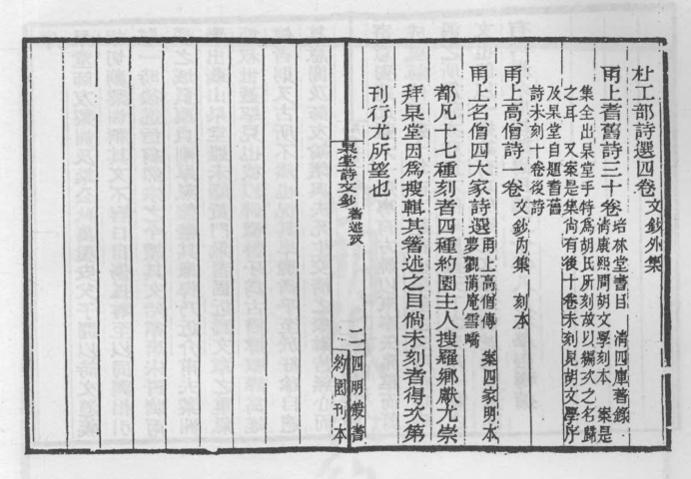 杜工部詩選四卷 文鈔外集
甬上耆舊詩三十卷 培林堂書目 清四庫著錄
清康熙間胡文學刻本 案是
集全出杲堂手特為胡氏所刻故以編次之名歸
之耳 又案是集尚有後十卷未刻見胡文學序
及杲堂自題耆舊
詩未刻十卷後詩
甬上高僧詩一卷 文鈔內集 刻本
甬上名僧四大家詩選 甬上高僧傳 案四家明本
夢觀蒲庵雪嶠
都凡十七種刻者四種約園主人搜羅鄉獻尤崇
拜杲堂因為搜輯其著述之目倘未刻者得次第
刊行尤所望也
杲堂詩文鈔 著述攷 二 四明叢書
約園刊本